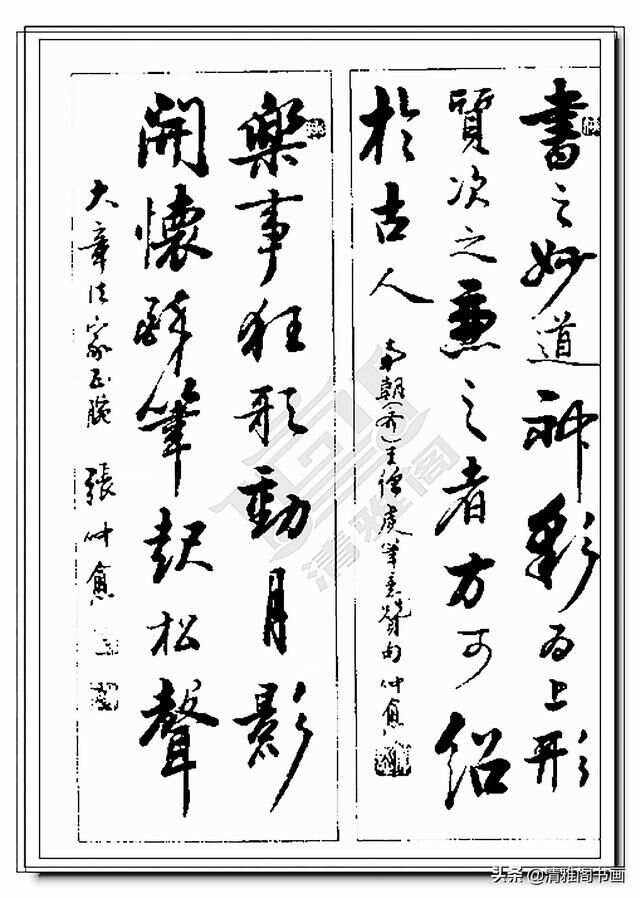 書之妙道神彩為上形
質次之兼之者方可紹
於古人
南朝(齊)王僧虔筆意贊句仲愈
樂事狂歌動月影
開懷醉筆起松聲
大章法家正腕 張仲愈
清雅阁
头条@清雅阁书画